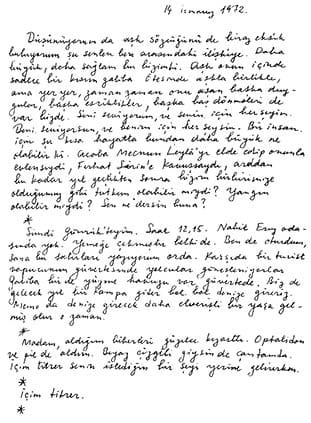 14 Temmuz 1972.
Düşünüyorum da aşk sözcüğünü de biraz eksik
buluyorum şu senlen ben arasındaki ilişkiye. Daha
büyük, daha sağlam bir bizimki. Aşk onun içinde
sadece bir kısım galiba. Ötesinde aşkla birlikte,
ama yer yer, zaman zaman onu aşan başka duy-
gular, başka esriklikler, başka baş dönmeleri de
var bizde. Seni seviyorum, ve senin için herşeyim.
Beni seviyorsun, ve benim için herşeysin. Bir insan
için şu kısa hayatta bundan daha büyük ne
olabilir ki. Acaba Mecnun Leylâ'yı elde edip onunla
evlenseydi, Ferhat Şirin'e kavuşsaydı, aradan
bu kadar yıl geçtikten sonra bizim birbirimize
olduğumuz gibi tutkun olabilir miydi? Yangın
olabilir miydi? Sen ne dersin buna?
*
Şimdi Gümrükteyim. Saat 12,15. Nahit Eruz oda-
sında yok. Yemeğe çıkmıştır belki de. Ben de oturdum,
sana bu satırları yazıyorum orda. Karşıda bir turist
vapurunun güvertesinde yolcular güneşleniyorlar
Galiba bir de yüzme havuzu var güvertede. Biz de
gelecek yıl bir kampa gider bol bol denize gireriz.
Memo da denize girecek daha elverişli bir yaşa gel-
miş olur o zaman.
*
Madam, aldığım biberleri güzelce kızarttı. Optalidon
ve pil de aldım. Beyaz çizgili giysin de çantamda.
İçim titrer senin istediğin bir şeyi yerine getirirken.
*
İçim titrer.
*